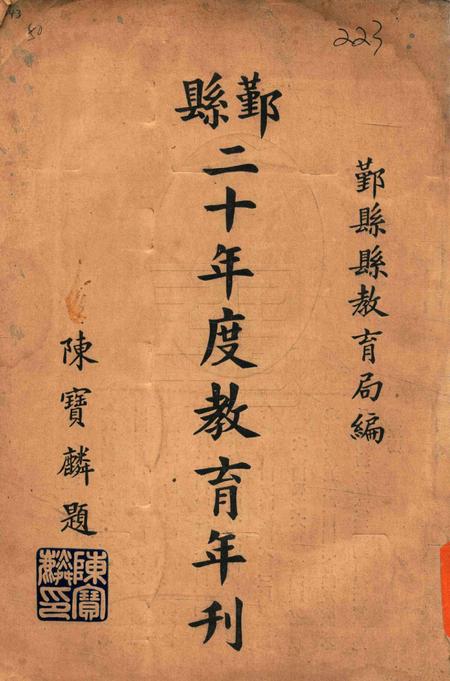 223
50
鄞縣縣教育局編
鄞縣
二十年度教育年刊
陳寶麟題
陳寶麟印